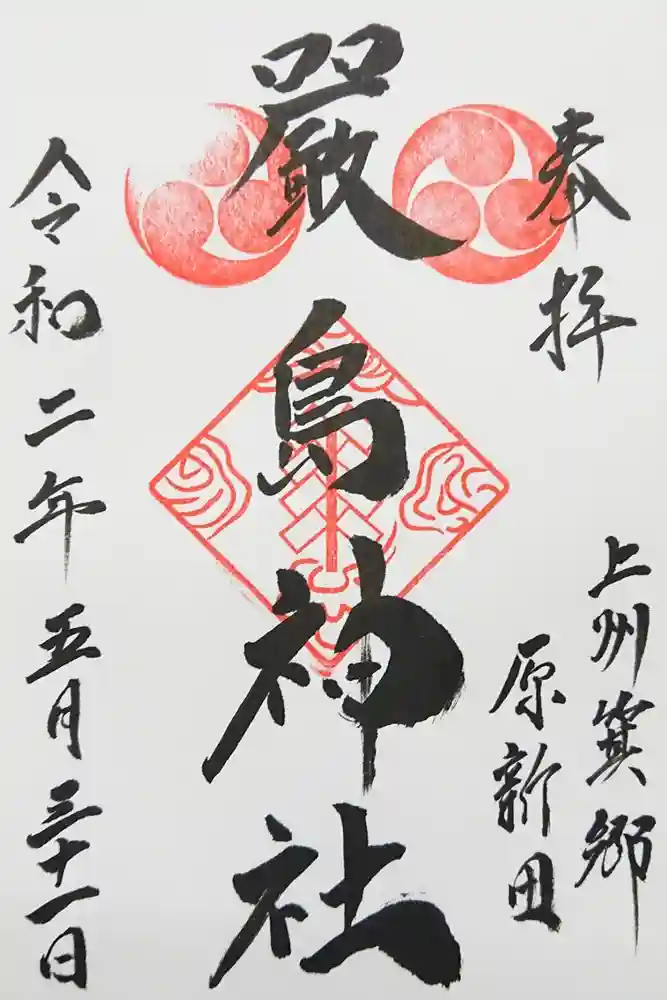 奉拝
上州箕郷
原新田
厳島神社
令和二年五月三十一日